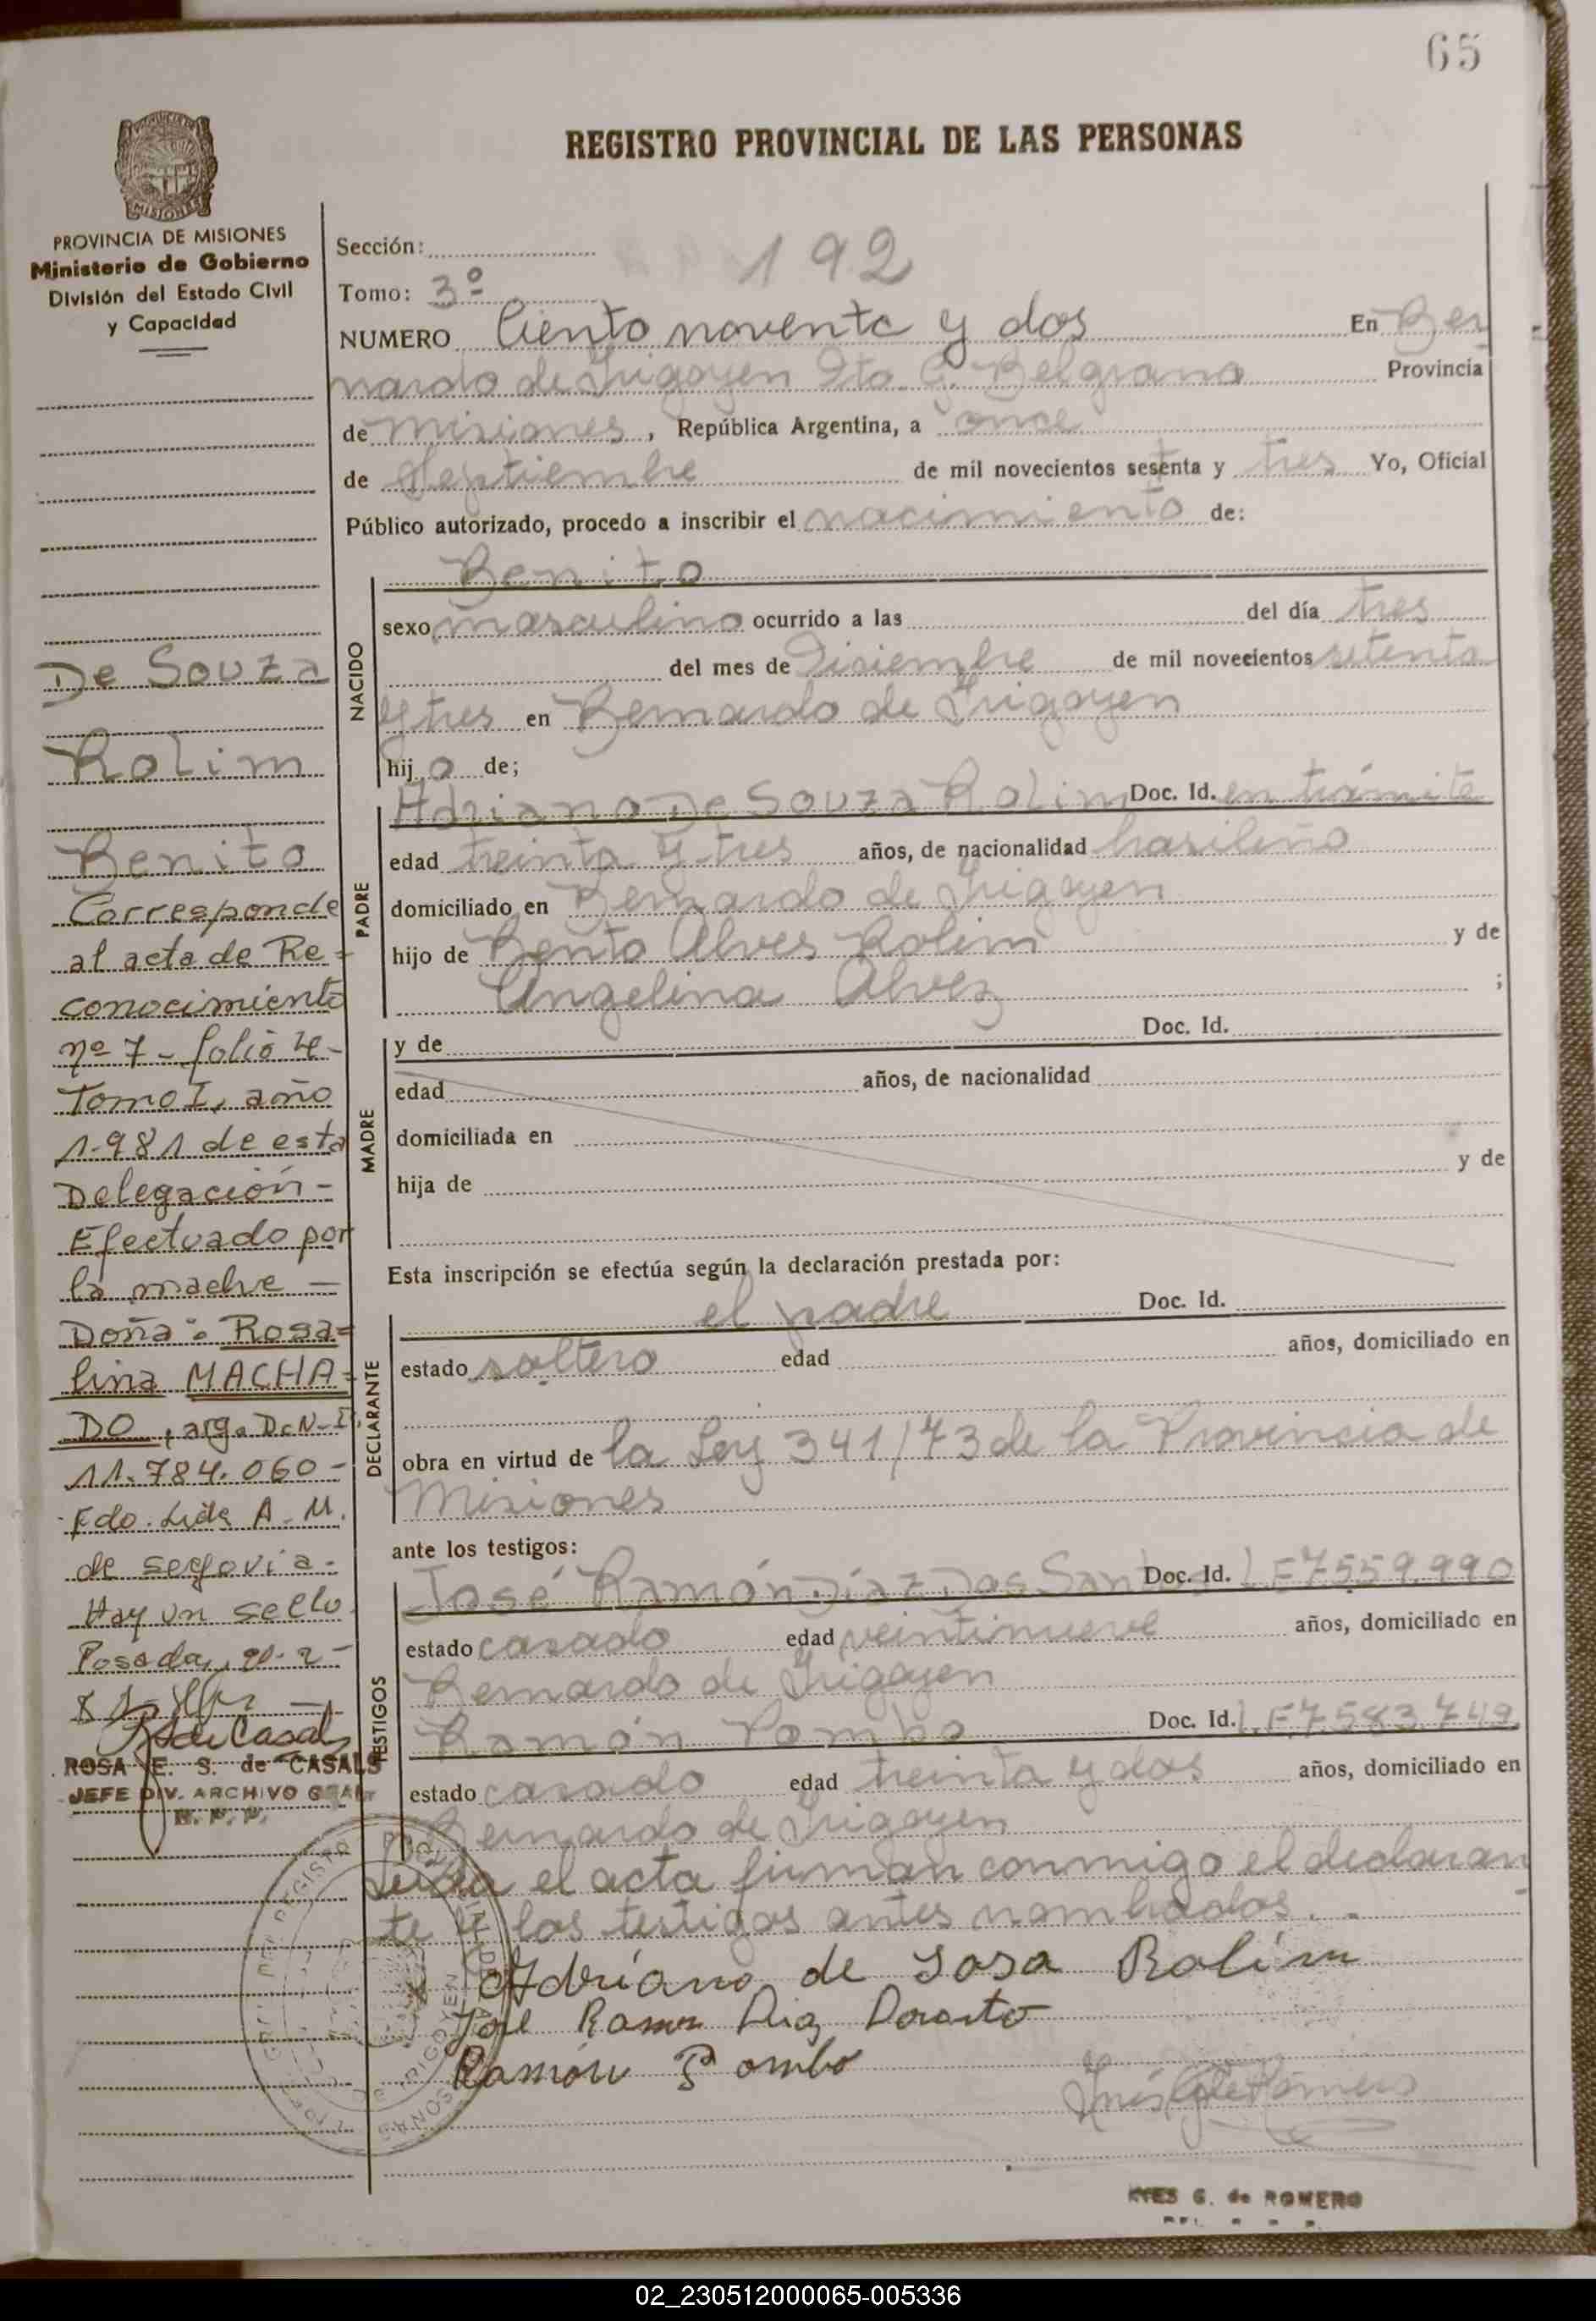 65
REGISTRO PROVINCIAL DE LAS PERSONAS
PROVINCIA DE MISIONES
Ministerio de Gobierno
División del Estado Civil
y Capacidad
De Souza
Rolim
Benito
Corresponde
al acta de Re=
conocimiento
nº 7 - folio 4 -
Tomo I, año
1.981 de esta
Delegación -
Efectuado por
la madre —
Doña: Rosa=
lina MACHA=
DO, arg. D.N.I.
11.784.060 -
Fdo. Lida A. M.
de Segovia -
Hay un sello
Posadas,
ROSA E. S. de CASALS
JEFE DIV. ARCHIVO GRAL
R. P. P.
Sección:
192
Tomo: 3º
NUMERO Ciento noventa y dos En Ber
nardo de Irigoyen Dto. G. Belgrano Provincia
de Misiones, República Argentina, a once
de Septiembre de mil novecientos sesenta y tres Yo, Oficial
Público autorizado, procedo a inscribir el nacimiento de:
NACIDO
Benito
sexo masculino ocurrido a las del día tres
del mes de Diciembre de mil novecientos setenta
y tres en Bernardo de Irigoyen
hij o de;
PADRE
Adriano De Souza Rolim Doc. Id. en trámite
edad treinta y tres años, de nacionalidad brasileño
domiciliado en Bernardo de Irigoyen
hijo de Bento Alves Rolim y de
Angelina Alvez ;
MADRE
y de Doc. Id.
edad años, de nacionalidad
domiciliada en
hija de y de
Esta inscripción se efectúa según la declaración prestada por:
DECLARANTE
el padre Doc. Id.
estado soltero edad años, domiciliado en
obra en virtud de la Ley 341/73 de la Provincia de
Misiones
ante los testigos:
TESTIGOS
José Ramón Díaz Dos Santos Doc. Id. L.E 7.559.990
estado casado edad veintinueve años, domiciliado en
Bernardo de Irigoyen
Ramón Pombo Doc. Id. L.E 7.583.749
estado casado edad treinta y dos años, domiciliado en
Bernardo de Irigoyen
Leída el acta firman conmigo el declaran
te y los testigos antes nombrados..
Adriano de Sosa Rolim
José Ramon Diaz
Ramón Pombo
INES G. de ROMERO
02_230512000065-005336